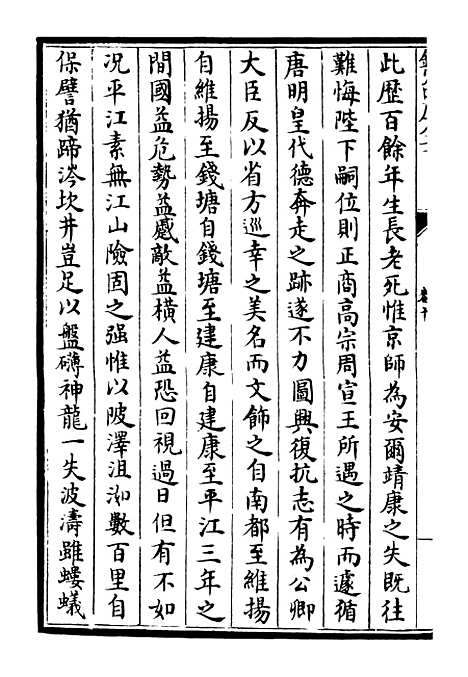 此歴百餘年生長老死惟京師為安爾靖康之失既往
難悔陛下嗣位則正商高宗周宣王所遇之時而遽循
唐明皇代德奔走之跡遂不力圖興復抗志有為公卿
大臣反以省方巡幸之美名而文飾之自南都至維揚
自維揚至錢塘自錢塘至建康自建康至平江三年之
間國益危勢益蹙敵益橫人益恐回視過日但有不如
況平江素無江山險固之强惟以陂澤沮洳數百里自
保譬猶蹄涔坎井豈足以盤礴神龍一失波濤雖螻蟻